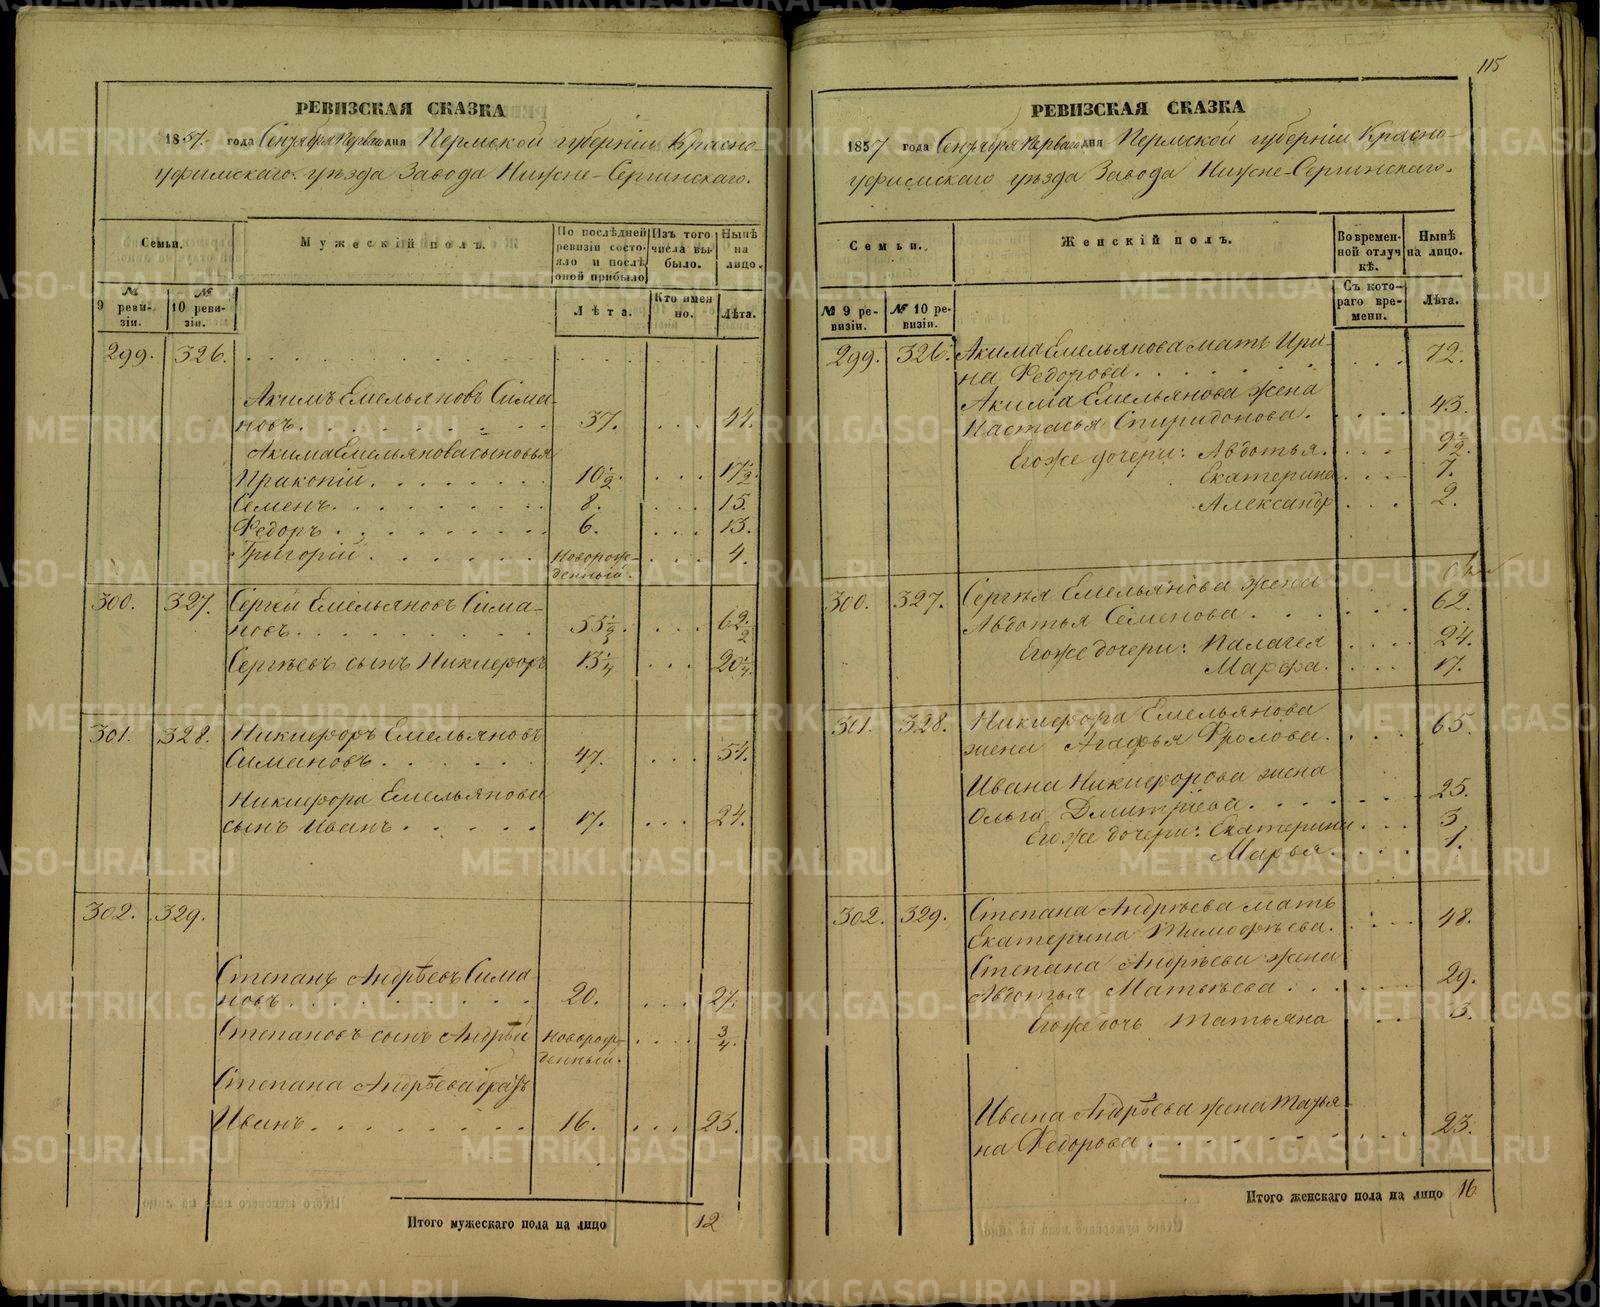 115
РЕВИЗСКАЯ СКАЗКА
1857 года Сентября Перваго дня Пермской губерніи Красно-
уфимскаго уѣзда Завода Нижне-Сергинскаго.
Семьи.
Мужескій полъ.
По послѣдней ревизіи состояло и послѣ оной прибыло
Изъ того числа выбыло.
Нынѣ на лицо.
№ 9 ревизіи.
№ 10 ревизіи.
Лѣта.
Кто именно.
Лѣта.
299. 326.
Акимъ Емельяновъ Сима-
новъ. 37. 44.
Акима Емельянова сыновья
Пракопій. 10½. 17½.
Семенъ. 8. 15.
Федоръ. 6. 13.
Григорій. Новорож-
денный. 4.
300. 327. Сергѣй Емельяновъ Сима-
новъ. 55½. 62½
Сергѣевъ сынъ Никифоръ 13¼ 20¼.
301. 328. Никифоръ Емельяновъ
Симановъ. 47. 54.
Никифора Емельянова
сынъ Иванъ. 17. 24.
302. 329.
Степанъ Андрѣевъ Сима-
новъ. 20. 27.
Степановъ сынъ Андрѣй Новорож-
денный. ¾.
Степана Андрѣева братъ
Иванъ. 16. 23.
Итого мужескаго пола на лицо 12
РЕВИЗСКАЯ СКАЗКА
1857 года Сентября Перваго дня Пермской губерніи Красно-
уфимскаго уѣзда Завода Нижне-Сергинскаго.
Семьи.
Женскій полъ.
Во временной отлучкѣ.
Нынѣ на лицо.
№ 9 ревизіи.
№ 10 ревизіи.
Съ котораго времени.
Лѣта.
299. 326. Акима Емельянова мать Ири-
на Федорова. 72.
Акима Емельянова жена
Настасья Спиридонова. 43.
Егоже дочери: Авдотья. 9½.
Екатерина 7.
Александр 2.
300. 327. Сергѣя Емельянова жена
Авдотья Семенова. 62.
Егоже дочери: Палагея 24.
Марфа. 17.
301. 328. Никифора Емельянова
жена Агафья Фролова. 65.
Ивана Никифорова жена
Ольга Дмитріева. 25.
Егоже дочери: Екатерина 3.
Марья. 1.
302. 329. Степана Андрѣева мать
Екатерина Тимофѣева. 48.
Степана Андрѣева жена
Авдотья Матвѣева. 29.
Егоже дочь Татьяна 3.
Ивана Андрѣева жена Татья-
на Федорова. 23.
Итого женскаго пола на лицо 16
METRIKI.GASO-URAL.RU